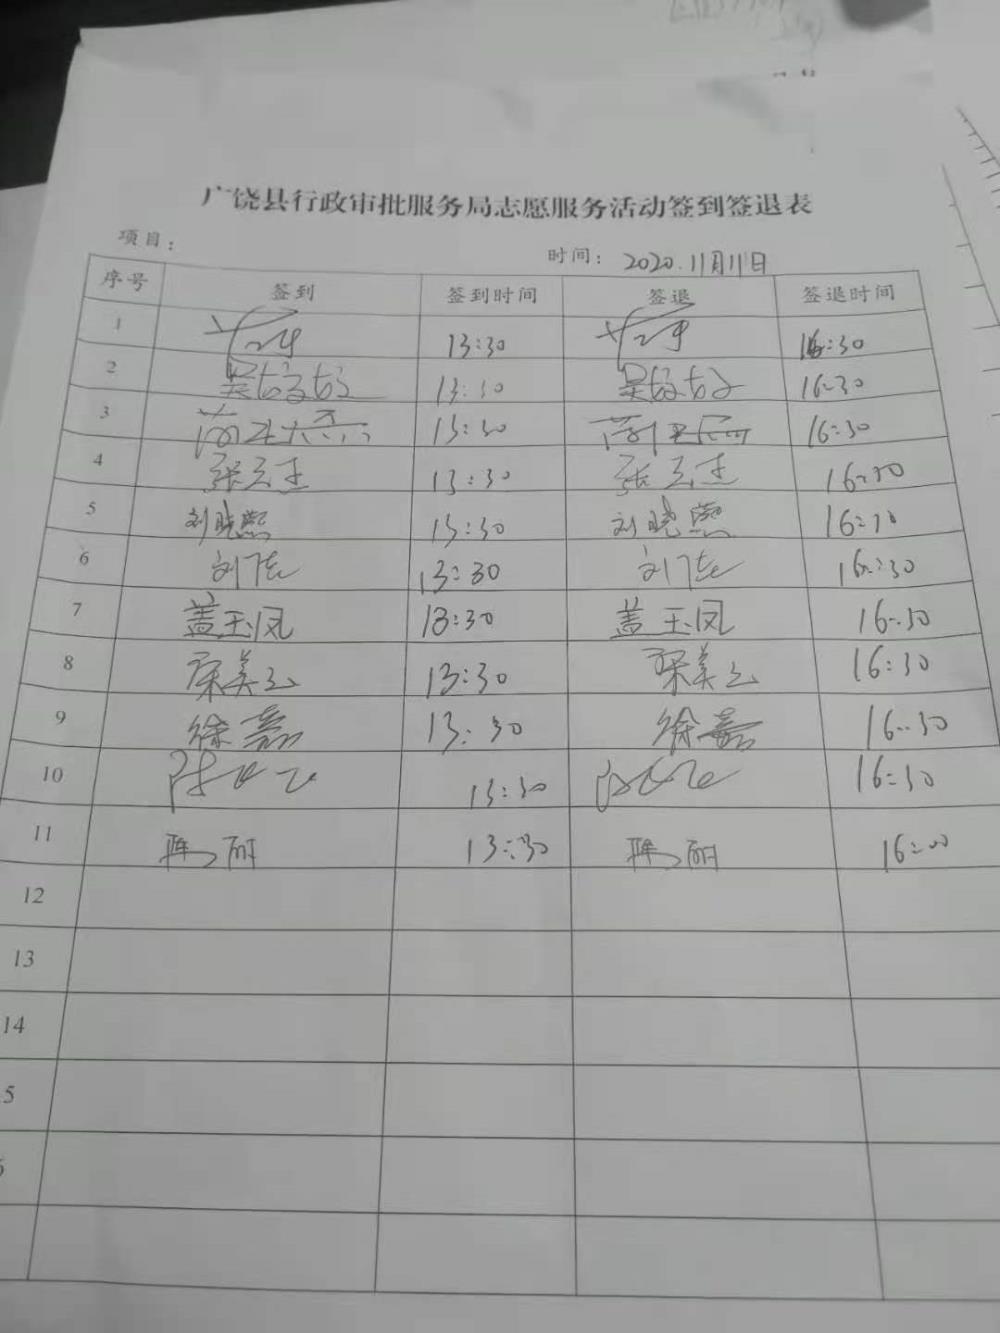 广饶县行政审批服务局志愿服务活动签到签退表
项目： 时间：2020.11月11日
序号 签到 签到时间 签退 签退时间
1 13:30 16:30
2 吴姣姣 13:30 吴姣姣 16:30
3 13:30 16:30
4 张云杰 13:30 张云杰 16:30
5 刘晓熙 13:30 刘晓熙 16:30
6 刘 13:30 刘 16:30
7 盖玉凤 13:30 盖玉凤 16:30
8 美云 13:30 美云 16:30
9 徐嘉 13:30 徐嘉 16:30
10 13:30 16:30
11 丽 13:30 丽 16:00
12
13
14
5